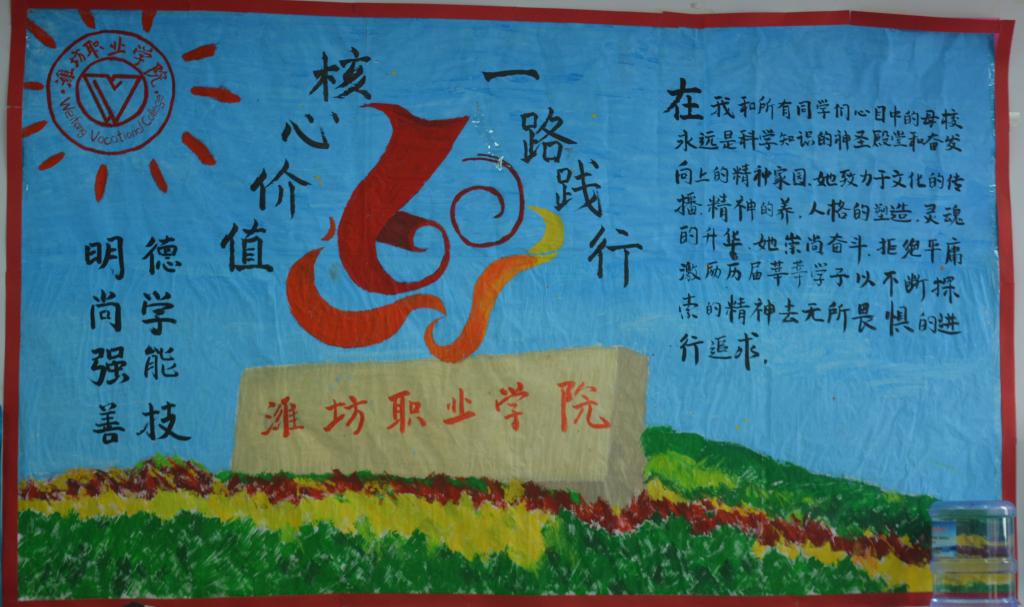 潍坊职业学院
Weifang Vocational College
核心价值
一路践行
明德
尚学
强能
善技
潍坊职业学院
在我和所有同学们心目中的母校
永远是科学知识的神圣殿堂和奋发
向上的精神家园.她致力于文化的传
播.精神的养.人格的塑造.灵魂
的升华.她崇尚奋斗.拒绝平庸
激励历届莘莘学子以不断探
索的精神去无所畏惧的进
行追求.